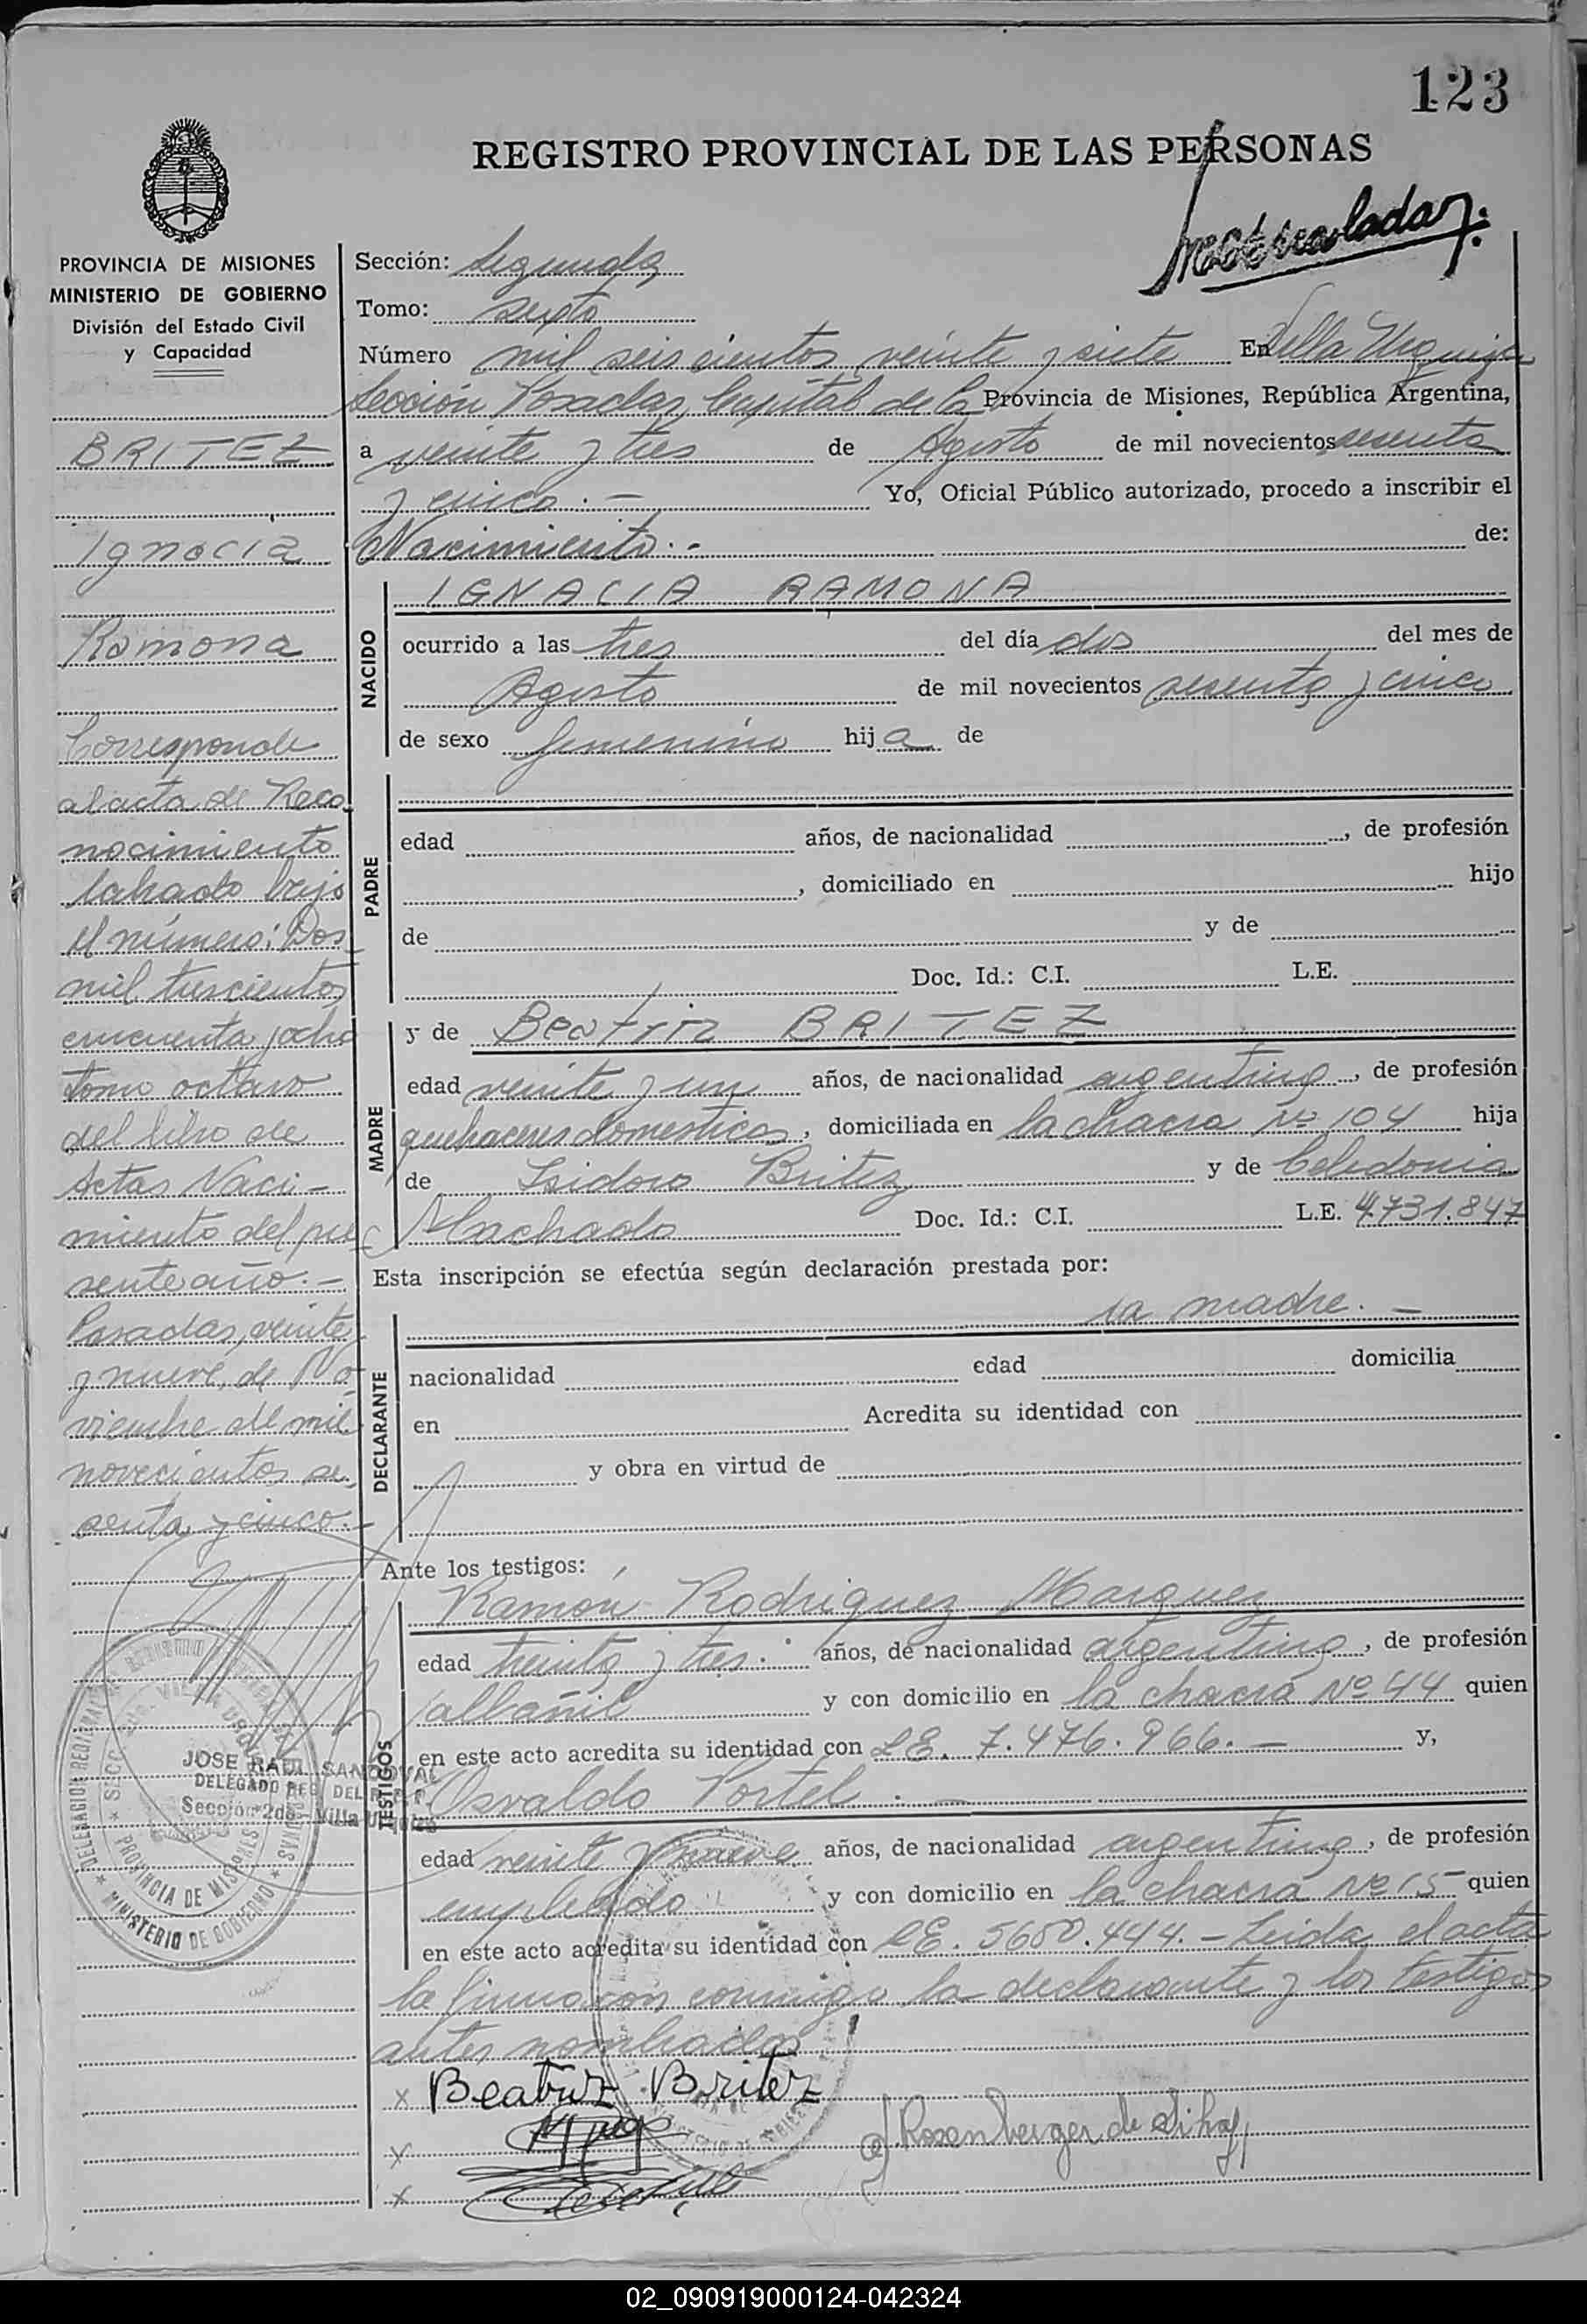 123
REGISTRO PROVINCIAL DE LAS PERSONAS
Matriculada
PROVINCIA DE MISIONES
MINISTERIO DE GOBIERNO
División del Estado Civil
y Capacidad
BRITEZ
Ignacia
Ramona
Corresponde
al acta de Reco-
nocimiento
labrado bajo
el número: Dos
mil trescientos
cincuenta y ocho
tomo octavo
del libro de
Actas Naci-
miento del pre
sente año.-
Posadas, veinte
y nueve, de No
viembre de mil
novecientos se-
senta y cinco.-
JOSE RAUL SANDOVAL
DELEGADO REG. DEL R.P.P.
Sección 2da - Villa Urquiza
DELEGACION
PROVINCIA DE MISIONES
MINISTERIO DE GOBIERNO
Sección: Segunda
Tomo: sexto
Número mil seiscientos veinte y siete En Villa Urquiza
Sección Posadas, Capital de la Provincia de Misiones, República Argentina,
a veinte y tres de Agosto de mil novecientos sesenta
y cinco.- Yo, Oficial Público autorizado, procedo a inscribir el
Nacimiento.- de:
NACIDO
IGNACIA RAMONA
ocurrido a las tres del día dos del mes de
Agosto de mil novecientos sesenta y cinco
de sexo femenino hija de
PADRE
edad años, de nacionalidad , de profesión
, domiciliado en hijo
de y de
Doc. Id.: C.I. L.E.
MADRE
y de Beatriz BRITEZ
edad veinte y un años, de nacionalidad argentina, de profesión
quehaceres domesticos, domiciliada en la chacra Nº 104 hija
de Isidoro Britez y de Celedonia
Machado Doc. Id.: C.I. L.E. 4.731.847
Esta inscripción se efectúa según declaración prestada por:
DECLARANTE
la madre.-
nacionalidad edad domicilia
en Acredita su identidad con
y obra en virtud de
Ante los testigos:
TESTIGOS
Ramón Rodriguez Marquez
edad treinta y tres. años, de nacionalidad argentina, de profesión
albañil y con domicilio en la chacra Nº 44 quien
en este acto acredita su identidad con LE. 7.476.966.- y,
Osvaldo Portel.-
edad veinte y nueve años, de nacionalidad argentina, de profesión
empleado y con domicilio en la chacra Nº 15 quien
en este acto acredita su identidad con LE. 5650.444.- Leida el acta
la firmaron conmigo la declarante y los testigos
antes nombrados
x Beatriz Britez
x
x
Rosenberger de
02_090919000124-042324